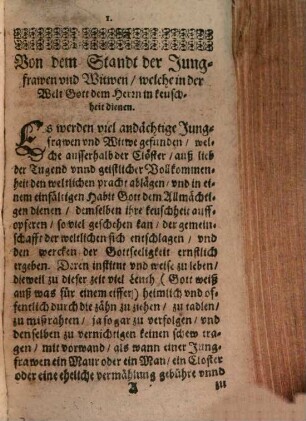 1.
Von dem Standt der Jung-
frawen vnd Witwen / welche in der
Welt Gott dem Herrn in keusch-
heit dienen.
Es werden viel andächtige Jung-
frawen vnd Witwe gefunden / wel-
che ausserhalb der Clöster / auß lieb
der Tugend vnnd geistlicher Vollkommen-
heit den weltlichen pracht ablägen / vnd in ei-
nem einfältigen Habit Gott dem Allmächti-
gen dienen / demselben ihre keuschheit auff-
opferen / so viel geschehen kan / der gemein-
schafft der weltlichen sich entschlagen / vnd
den wercken der Gottseeligkeit ernstlich
ergeben. Deren institut vnd weise zu leben /
dieweil zu dieser zeit viel Leuth / ( Gott weiß
auß was für einem eiffer) heimlich vnd of-
fentlich durch die zähn zu ziehen / zu tadlen /
zu mißrahten / ja so gar zu verfolgen / vnd
denselben zu vernichtigen keinen schew tra-
gen / mit vorwand / als wann einer Jung-
frawen ein Maur oder ein Man / ein Closter
oder eine eheliche vermählung gebühre vnnd
A zu